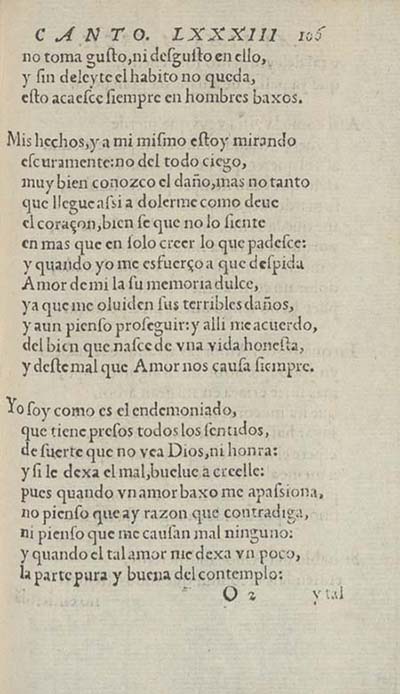 CANTO. LXXXIII 106
no toma gusto, ni desgusto en ello,
y sin deleyte el habito no queda,
esto acaesce siempre en hombres baxos.
Mis hechos, y a mi mismo estoy mirando
escuramente: no del todo ciego,
muy bien conozco el daño, mas no tanto
que llegue assi a dolerme como deue
el coraçon, bien se que no lo siente
en mas que en solo creer lo que padesce:
y quando yo me esfuerço a que despida
Amor de mi la su memoria dulce,
ya que me oluiden sus terribles daños,
y aun pienso proseguir: y alli me acuerdo,
del bien que nasce de vna vida honesta,
y deste mal que Amor nos causa siempre.
Yo soy como es el endemoniado,
que tiene presos todos los sentidos,
de suerte que no vea Dios, ni honra:
y si le dexa el mal, buelue a creelle:
pues quando vn amor baxo me apassiona,
no pienso que ay razon que contradiga,
ni pienso que me causan mal ninguno:
y quando el tal amor me dexa vn poco,
la parte pura y buena del contemplo:
O 2 y tal